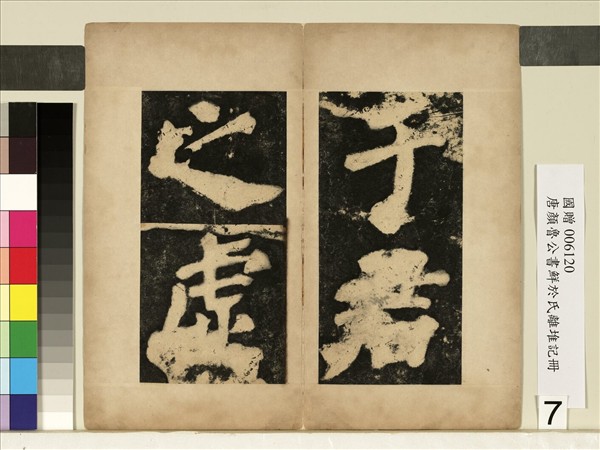 于君
之虛
國贈 006120
唐顏魯公書鮮於氏離堆記冊
7